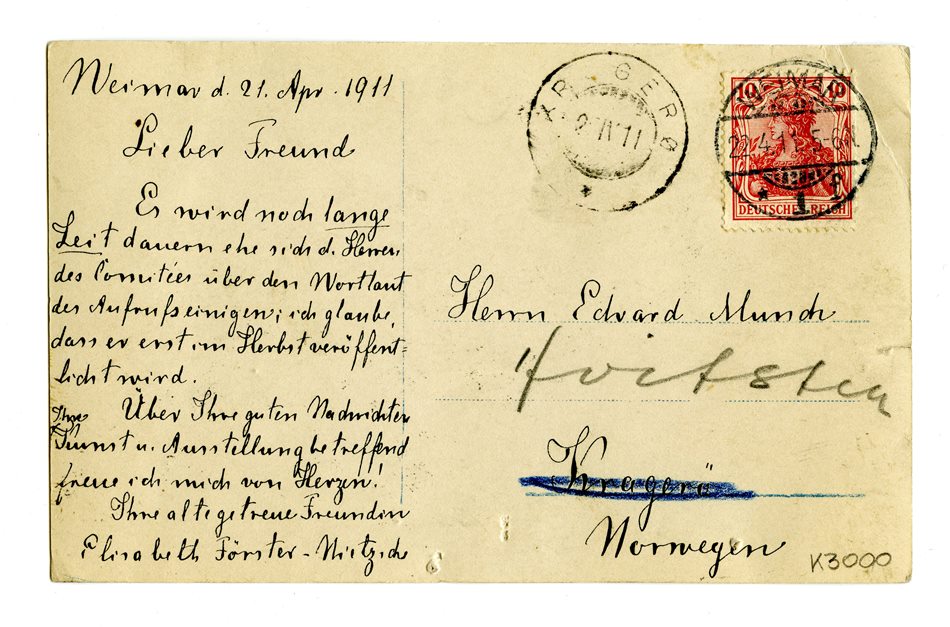 Weimar d. 21. Apr. 1911
Lieber Freund
Es wird noch lange
Zeit dauern ehe sich d. Herren
des Comitées über den Wortlaut
des Aufrufs einigen; ich glaube,
dass er erst im Herbst veröffent=
licht wird.
Über Ihre guten Nachrichten
Ihre
Kunst u. Ausstellung betreffend
freue ich mich von Herzen!
Ihre alte getreue Freundin
Elisabeth Förster-Nietzsche
KRAGERØ
IV 11
10 10
WEIMAR
22.4.11. 5-6N.
* 1 f
DEUTSCHES REICH
Herrn Edvard Munch
Hvitsten
Kragerö
Norwegen
K3000